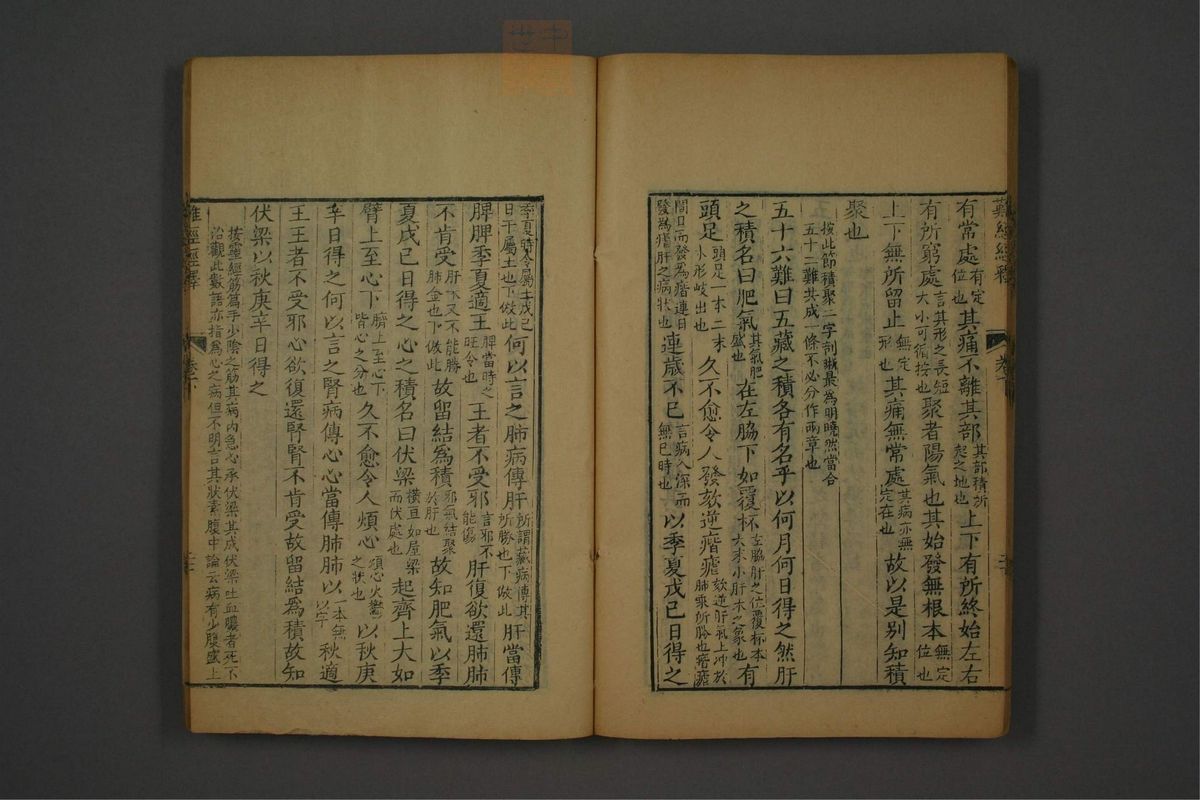 難經經釋 卷下
有常處有定位也其痛不離其部其部積所起之地也上下有所終始左右
有所窮處言其形之長短大小可循按也聚者陽氣也其始發無根本無定位也
上下無所留止無定形也其痛無常處其病亦無定在也故以是別知積
聚也
按此節積聚二字剖晰最為明曉然當合五十二難共成一條不必分作兩章也
五十六難曰五藏之積各有名乎以何月何日得之然肝
之積名曰肥氣其氣肥盛也在左脇下如覆杯左脇肝之位覆杯本大末小肝木之象也有
頭足頭足一本二末木形岐出也久不愈令人發欬逆瘖瘧欬逆肝氣上冲於肺乘所勝也瘖瘧
間日而發為瘖連日發為瘧肝之病狀也連歲不已言病入深而無已時也以季夏戊已日得之
季夏時令屬土戊已日干屬土也下倣此何以言之肺病傳肝所謂藏病傳其所勝也下倣此肝當傳
脾脾季夏適王脾當時之旺令也王者不受邪言邪不能傷肝復欲還肺肺
不肯受肝木又不能勝肺金也下倣此故留結爲積邪氣結聚於肝也故知肥氣以季
夏戊已日得之心之積名曰伏梁橫亘如屋梁而伏處也起齊上大如
臂上至心下臍上至心下皆心之分也久不愈令人煩心煩心火鬱之狀也以秋庚
辛日得之何以言之腎病傳心心當傳肺肺以一本無以字秋適
王王者不受邪心欲復還腎腎不肯受故留結爲積故知
伏梁以秋庚辛日得之
按靈經筋篇手少陰之筋其病内急心承伏梁其成伏梁吐血膿者死不治觀此數語亦指爲心之病但不明言其狀素腹中論云病有少腹盛上
難經經釋 卷下